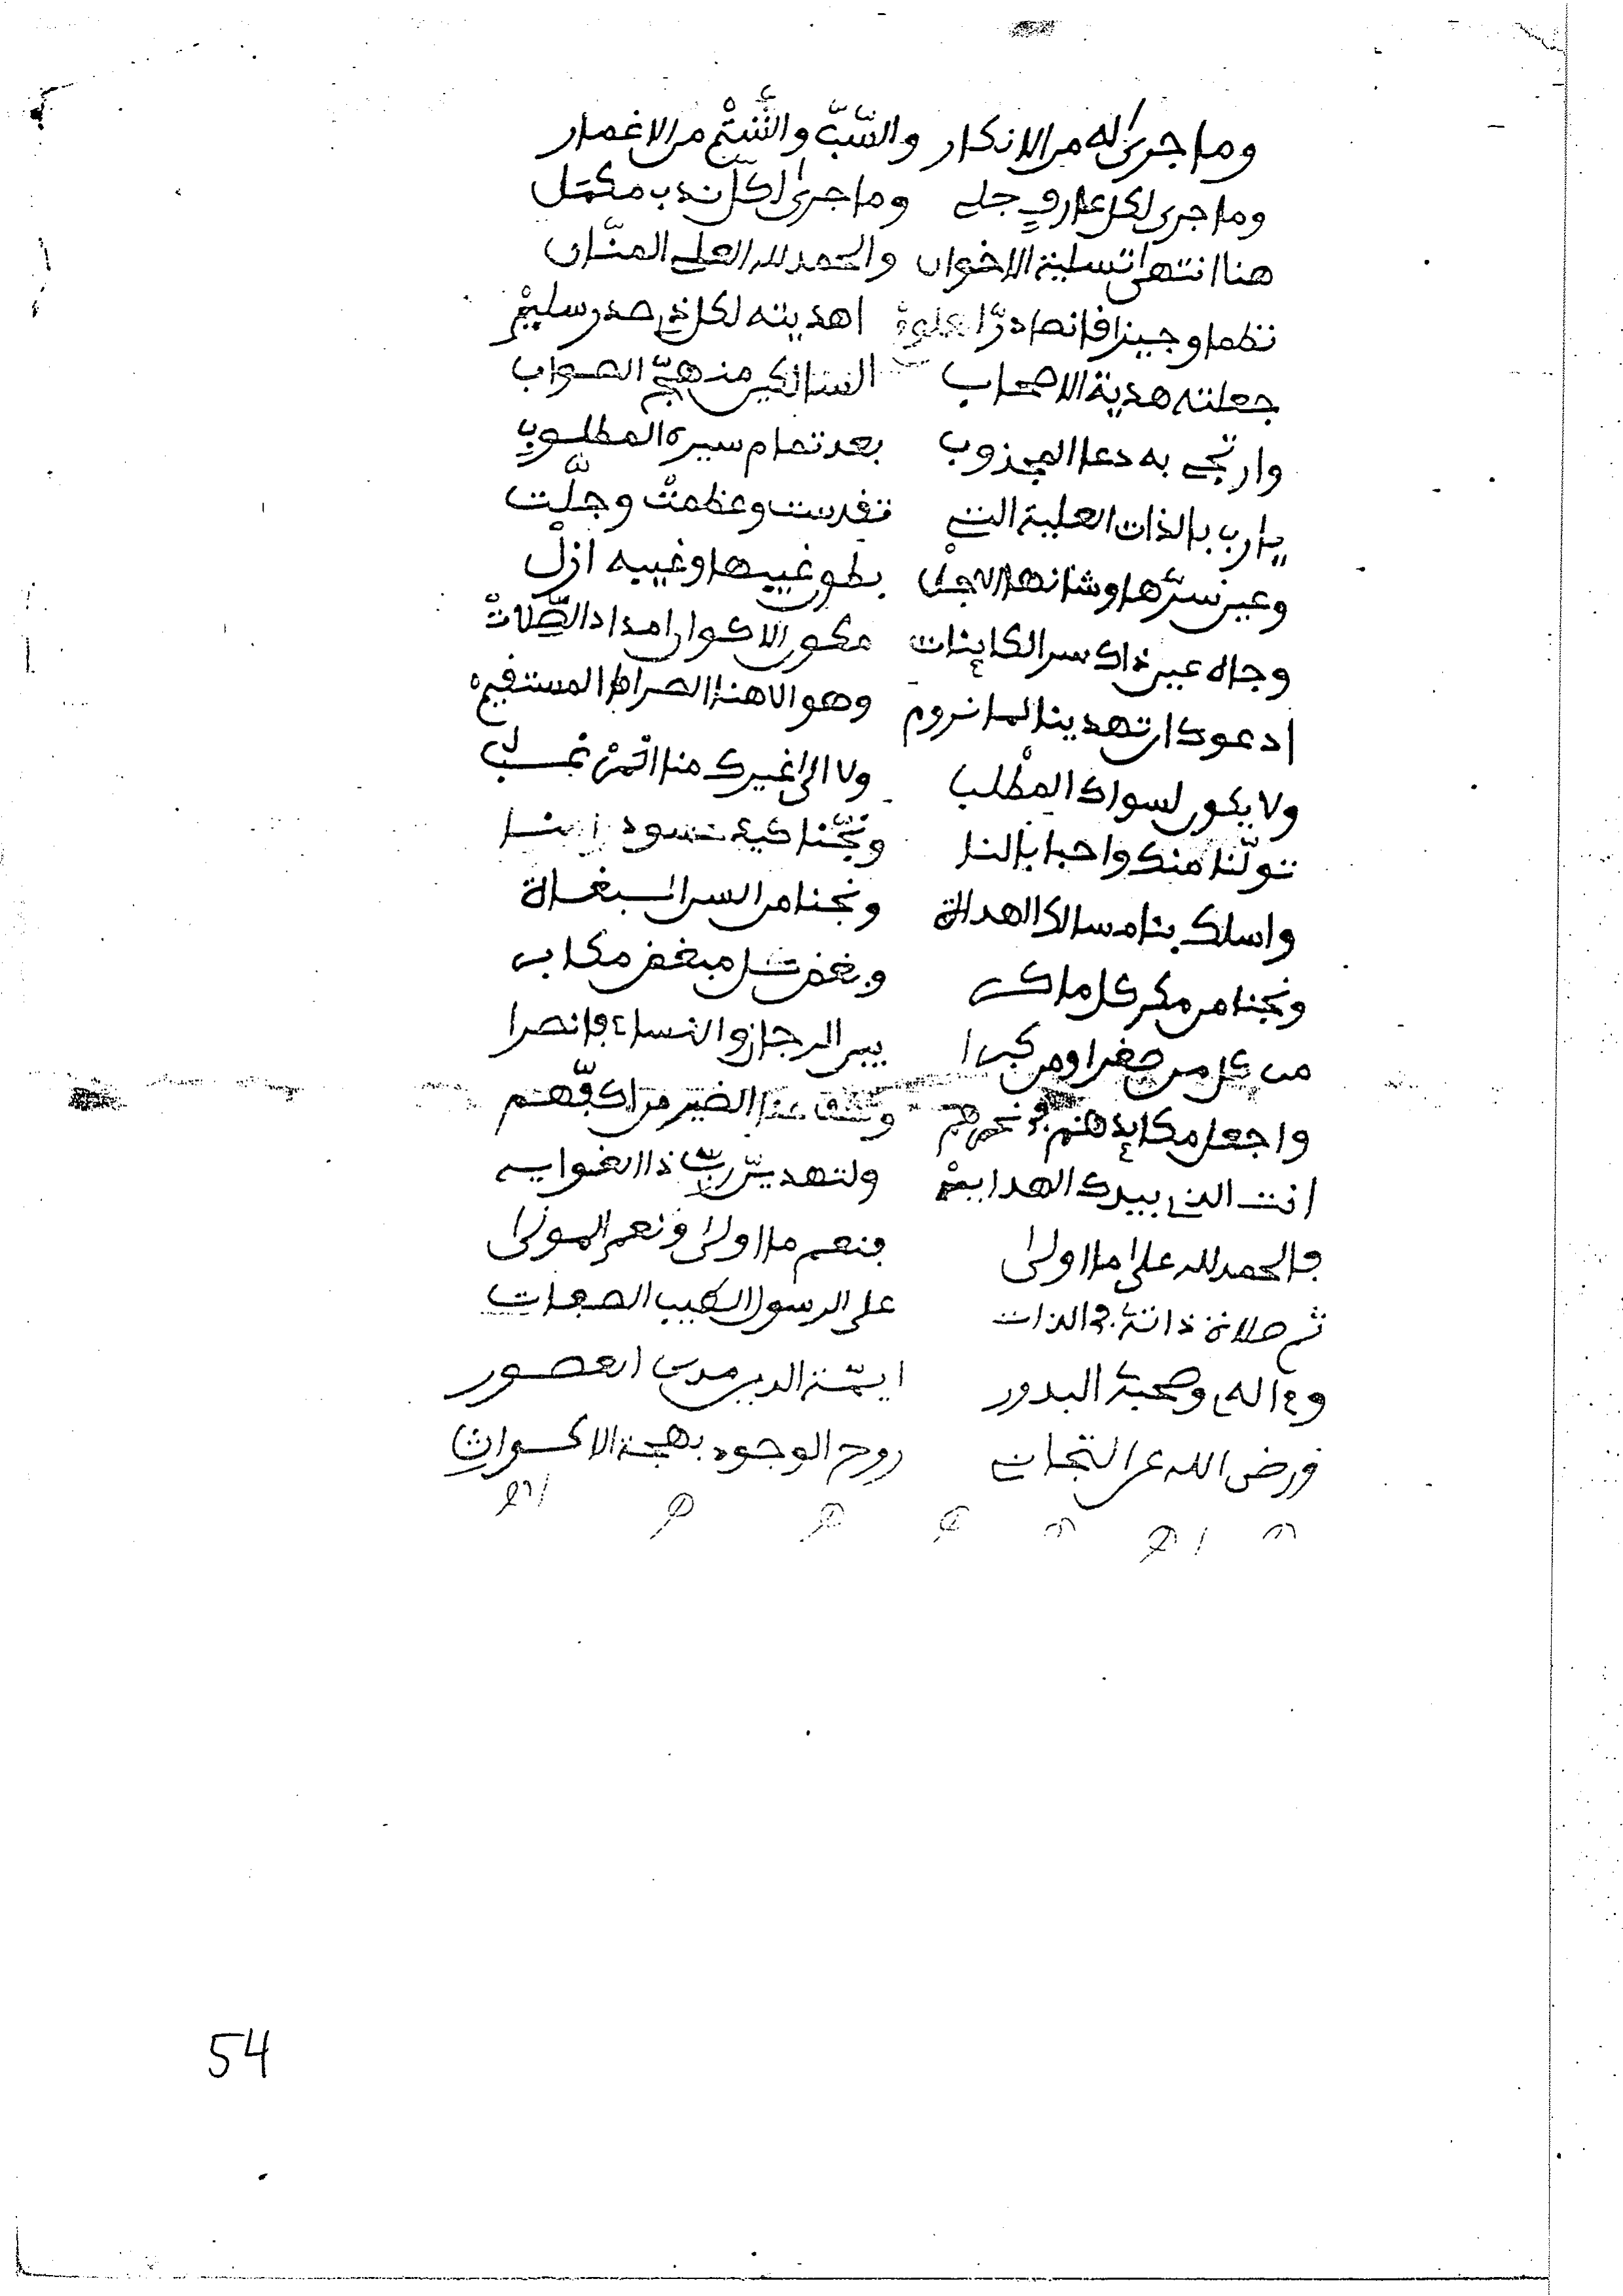 وما جرىٰ له من الانكار والسَّبّ والشَّتْمِ من الاغمار
وما جرى لكل عارفٍ جلي وما جرىٰ لكلّ ندب مكمَل
هنا انتهىٰ تسلية الاخوان والحمد لله العلي المنّان
نظما وجيزا فانصا درّا اهديته لكل ذي صدر سليمْ
جعلته هدية الاصحاب السالكين منهج الصواب
وارتجي به دعا المجذوب بعد تمام سيره المطلوبِ
يا رب بالذات العلية التي تقدست وعظمتْ وجلّت
وعين سرّها وشانها الاجلْ بطون غيبها وغيبه ازلْ
وجاه عين ذاك سر الكاينات مكون الاكوان امداد الصِّلاتْ
ادعوك ان تهدينا لما نروم وهو الاهنا الصراط المستقيم
ولا يكون لسواك المطْلب ولا الىٰ غيرك منا
تولّنا منك واحبابا لنا ونجّنا
واسلك بنا مسالك الهداة ونجنا من السن البغاة
ونجنا من مكر كل ماكر
من كل من صغرا ومن كبرا بين الرجال والنساء فانصرا
واجعل مكايدهم في نحرهم عنا الضير من اكفّهم
انت الذي بيدك الهدايه ولتهدين ربّ ذا الغوايه
فالحمد لله علىٰ ما اولىٰ فنعم ما اولىٰ ونعم المولىٰ
ثم صلاة ذاته في الذات على الرسول الطيب الصفات
وءاله وصحبه البدور ايمّة الدين مدى العصور
ورضى الله عن التجاني روح الوجود بهجة الاكوانِ
54